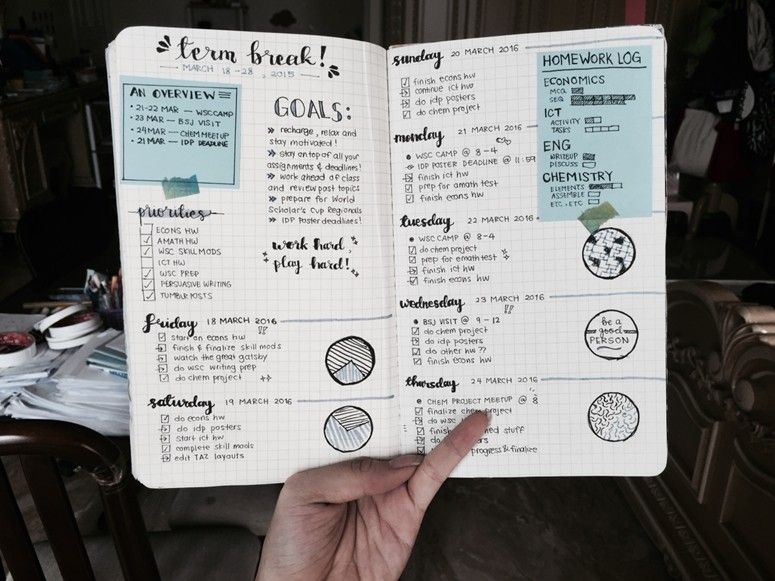 term break!
MARCH 18-28, 2015
AN OVERVIEW
• 21-22 MAR — WSC CAMP
• 23 MAR — BSJ VISIT
• 24 MAR — CHEM MEETUP
• 21 MAR — IDP DEADLINE
GOALS:
» recharge, relax and
stay motivated!
» stay on top of all your
assignments & deadlines!
» work ahead of class
and review past topics
» prepare for World
Scholar's Cup Regionals
» IDP Poster deadlines!
work hard,
play hard!
priorities
ECONS HW
AMATH HW
WSC SKILL MODS
ICT HW
WSC PREP
PERSUASIVE WRITING
TUMBLR POSTS
friday 18 MARCH 2016
start on econs hw
finish & finalize skill mods
watch the great gatsby
do wsc writing prep
do chem project
saturday 19 MARCH 2016
do econs hw
do idp posters
start ict hw
complete skill mods
edit TAZ layouts
sunday 20 MARCH 2016
finish econs hw
continue ict hw
do idp posters
do chem project
monday 21 MARCH 2016
• WSC CAMP @ 8-4
IDP POSTER DEADLINE @ 11:59
finish ict hw
prep for amath test
finish econs hw
tuesday 22 MARCH 2016
• WSC CAMP @ 8-4
do chem project
prep for emath test
finish ict hw
finish econs hw
wednesday 23 MARCH 2016
• BSJ VISIT @ 9-12
do chem project
do idp posters
do other hw ??
finish econs hw
thursday 24 MARCH 2016
• CHEM PROJECT MEETUP @ 8
finalize chem project
do wsc
stuff
progress & finalize
HOMEWORK LOG
ECONOMICS
MCQ
SEQ
ICT
ACTIVITY
TASKS
ENG
WRITEUP
DISCUSS
CHEMISTRY
ELEMENTS
ASSEMBLE
ETC. ETC.
be a
good
PERSON